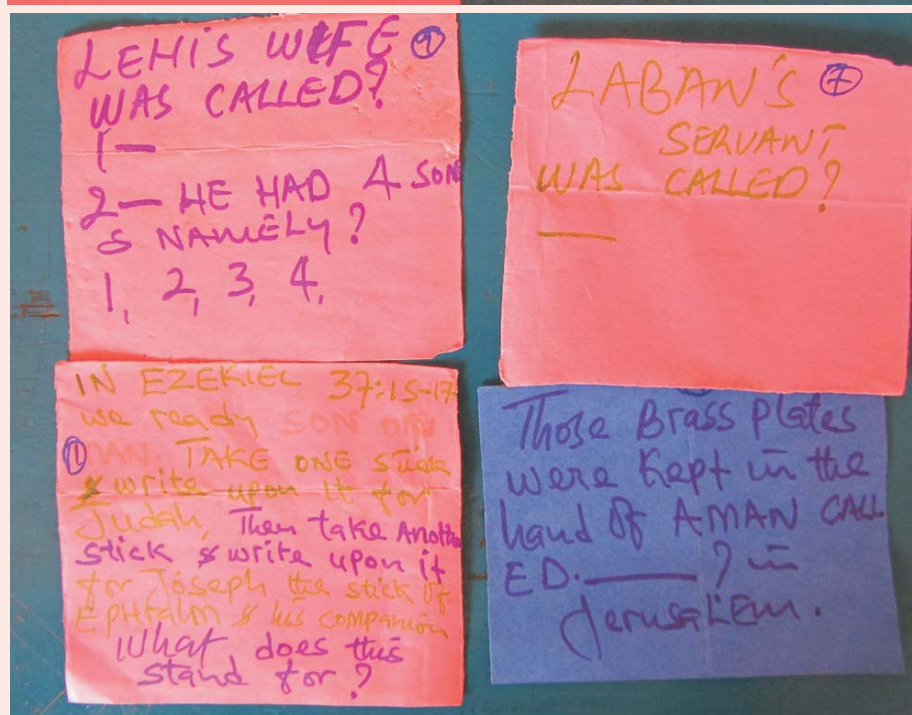 LEHIS WIFE
WAS CALLED?
1 —
2 — HE HAD 4 SON
S NAMELY?
1, 2, 3, 4,
LABAN'S
SERVANT
WAS CALLED?
___
IN EZEKIEL 37:15-17
we ready SON OF
MAN. TAKE ONE stick
& write upon it for
Judah, Then take Anothe
stick & write upon it
for Joseph the stick of
EPHraim & his companion
What does this
stand for?
Those Brass plates
were kept in the
hand of AMAN CALL
ED. ______ ? in
Jerusalem.